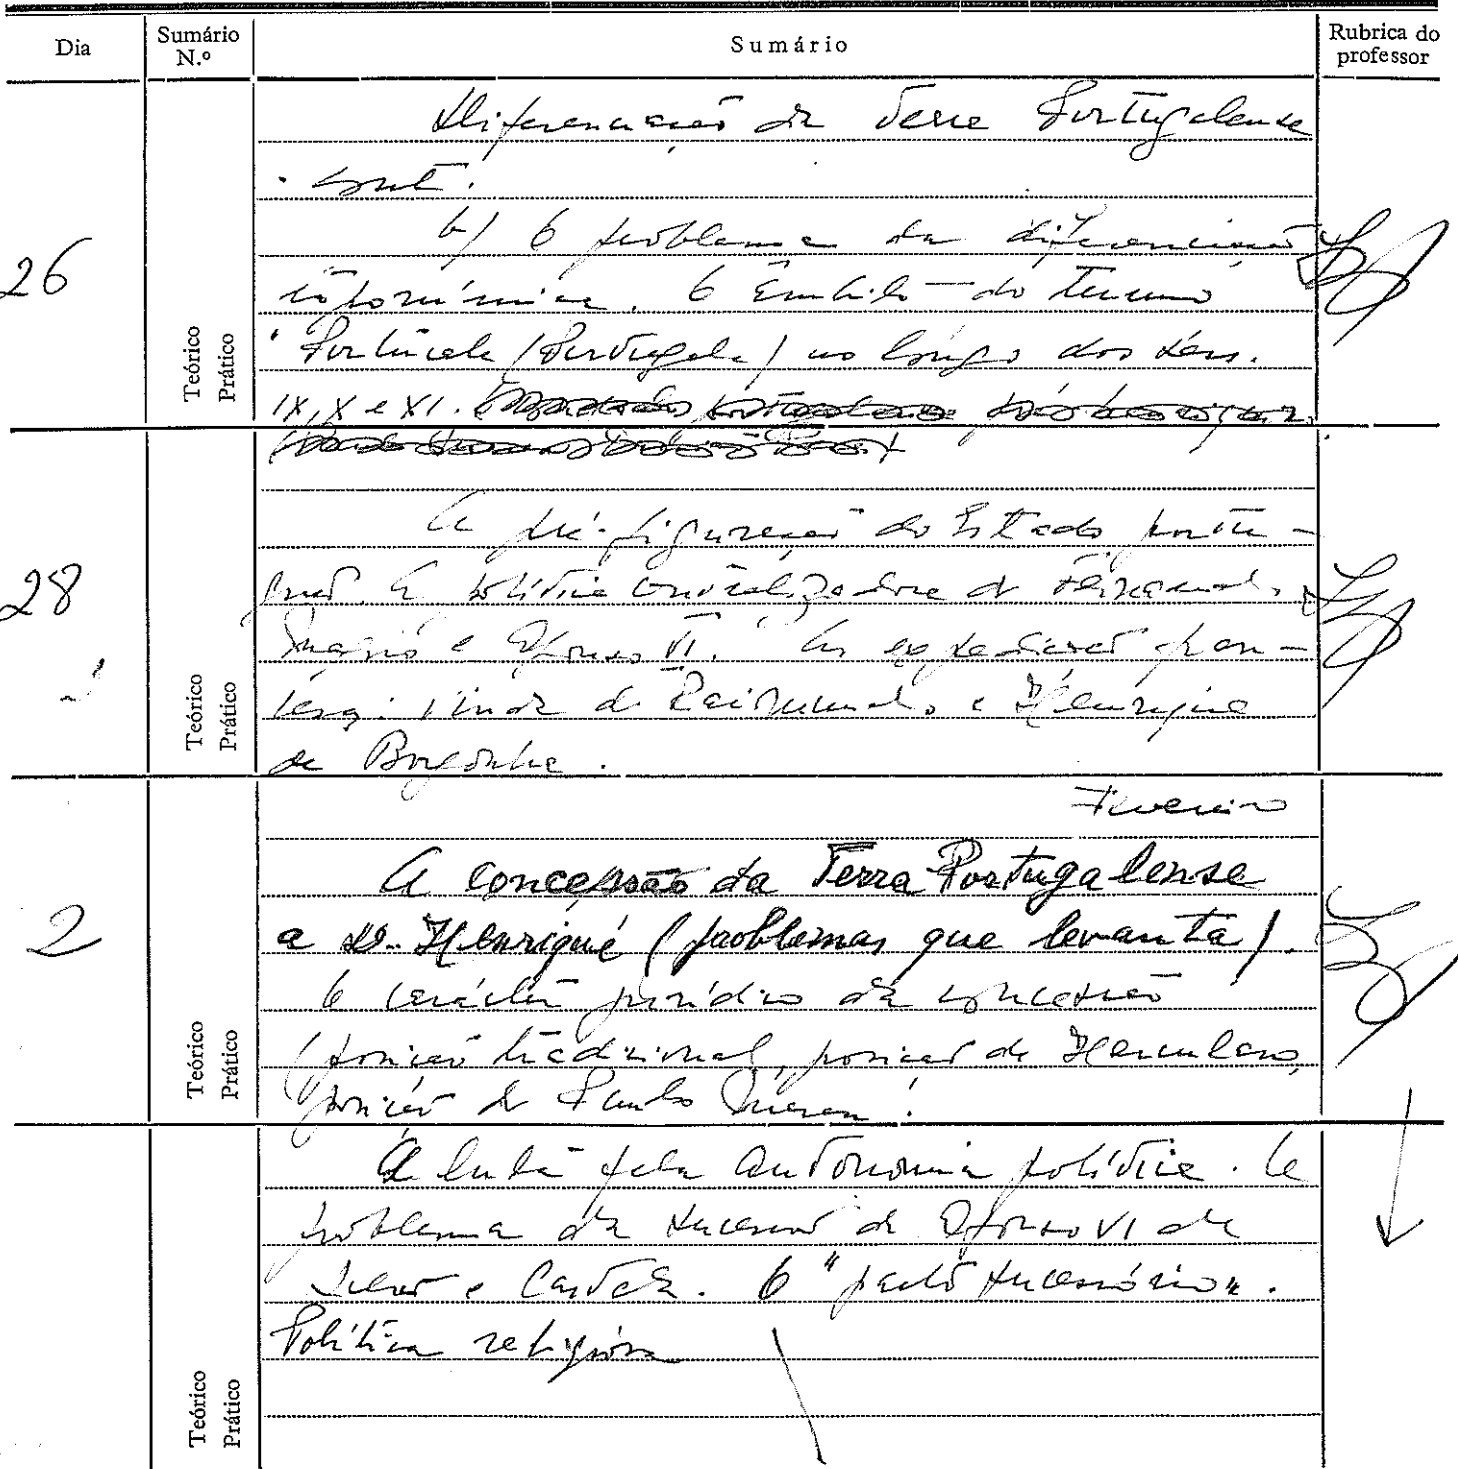 Dia Sumário N.º Sumário Rubrica do professor
Diferenciação da Terra Portugalense
cont.
26
b) O problema da diferenciação
toponímica. O âmbito do termo
Portucale (Portugale) ao longo dos sécs.
IX, X e XI.
Teórico
Prático
28
A pré-figuração do Estado portu-
guês. A política centralizadora de Fernando
Magno e Afonso VI. As
vinda de Raimundo e Henrique
de Borgonha.
Teórico
Prático
Fevereiro
2
A concessão da Terra Portugalense
a D. Henrique (problemas que levanta).
O carácter jurídico da concessão
(posição tradicional, posição de Herculano,
posição de Paulo Merêa).
Teórico
Prático
A luta pela autonomia política. O
problema da sucessão de Afonso VI de
Leão e Castela. O "pacto sucessório".
Política religiosa
Teórico
Prático